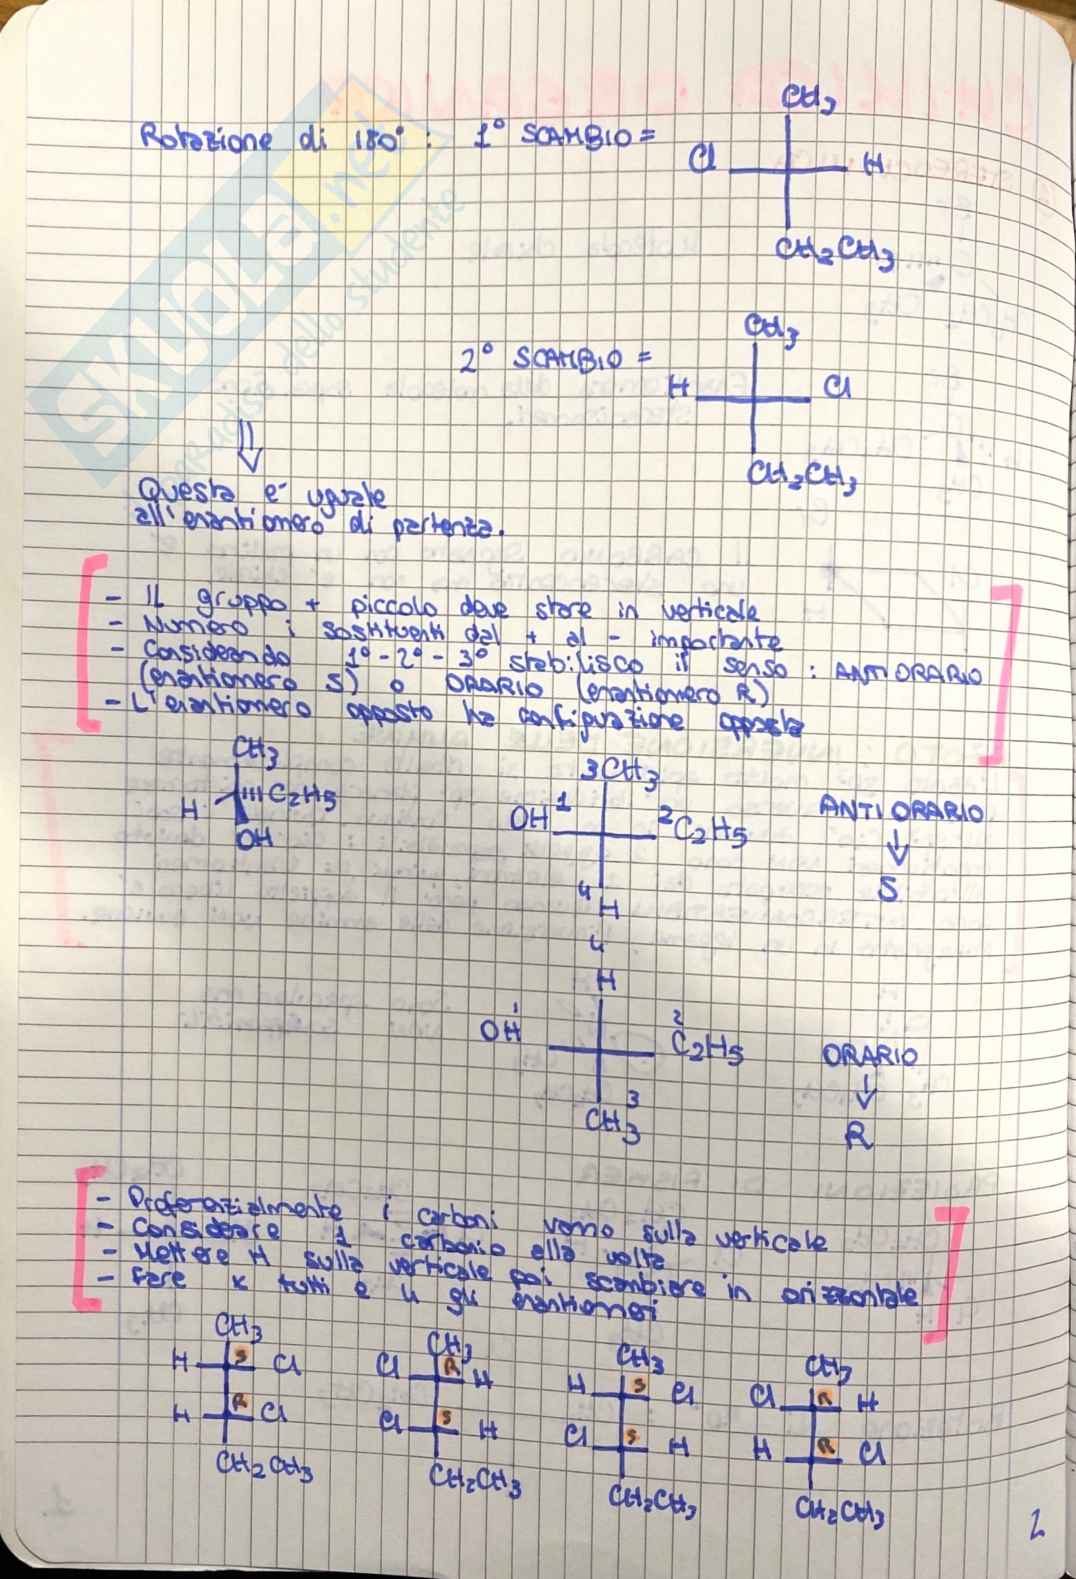 Rotazione di 180° : 1° SCAMBIO =
CH3
Cl H
CH2CH3
2° SCAMBIO =
CH3
H Cl
CH2CH3
Questa e' uguale
all'enantiomero di partenza.
- IL gruppo + piccolo deve stare in verticale
- Numero i sostituenti dal + al - importante
- Considerando 1° - 2° - 3° stabilisco il senso : ANTIORARIO
(enantiomero S) o ORARIO (enantiomero R)
- L'enantiomero opposto ha configurazione opposta
CH3
H C2H5
OH
3CH3
OH 1 2 C2H5
4 H
ANTIORARIO
S
4
H
OH 1 2 C2H5
3
CH3
ORARIO
R
- Preferenzialmente i carboni vanno sulla verticale
- Considerare 1 carbonio alla volta
- Mettere H sulla verticale poi scambiare in orizzontale
- Fare x tutti e 4 gli enantiomeri
CH3 CH3 CH3 CH3
H S Cl Cl R H H S Cl Cl R H
H R Cl Cl S H Cl S H H R Cl
CH2CH3 CH2CH3 CH2CH3 CH2CH3
2
SKUOLA.net
paradiso dello studente